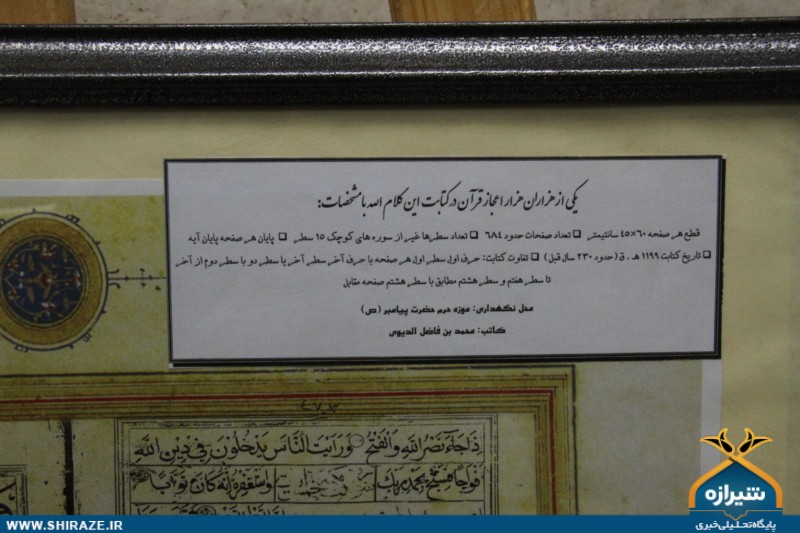 یکی از هزاران هزار اعجاز قرآن در کتابت این کلام الله با مشخصات:
قطع هر صفحه ۶۰×۴۵ سانتیمتر ❑ تعداد صفحات حدود ۶۸۴ ❑ تعداد سطرها غیر از سوره های کوچک ۱۵ سطر ❑ پایان هر صفحه پایان آیه
❑ تاریخ کتابت ۱۱۹۹ هـ . ق (حدود ۲۳۰ سال قبل) ❑ تفاوت کتابت: حرف اول سطر اول هر صفحه با حرف آخر سطر آخر یا سطر دو با سطر دوم از آخر
تا سطر هفتم و سطر هشتم مطابق با سطر هشتم صفحه مقابل
محل نگهداری: موزه حرم حضرت پیامبر (ص)
کاتب: محمد بن فاضل الدیوی
ذَا جَاءَ نَصْرُ اللَّهِ وَالْفَتْحُ وَرَأَيْتَ النَّاسَ يَدْخُلُونَ فِي دِينِ اللَّهِ
فْوَاجًا فَسَبِّحْ بِحَمْدِ رَبِّكَ وَاسْتَغْفِرْهُ إِنَّهُ كَانَ تَوَّابًا
شیرازه
پایگاه تحلیلی خبری
WWW.SHIRAZE.IR
WWW.SHIRAZE.IR